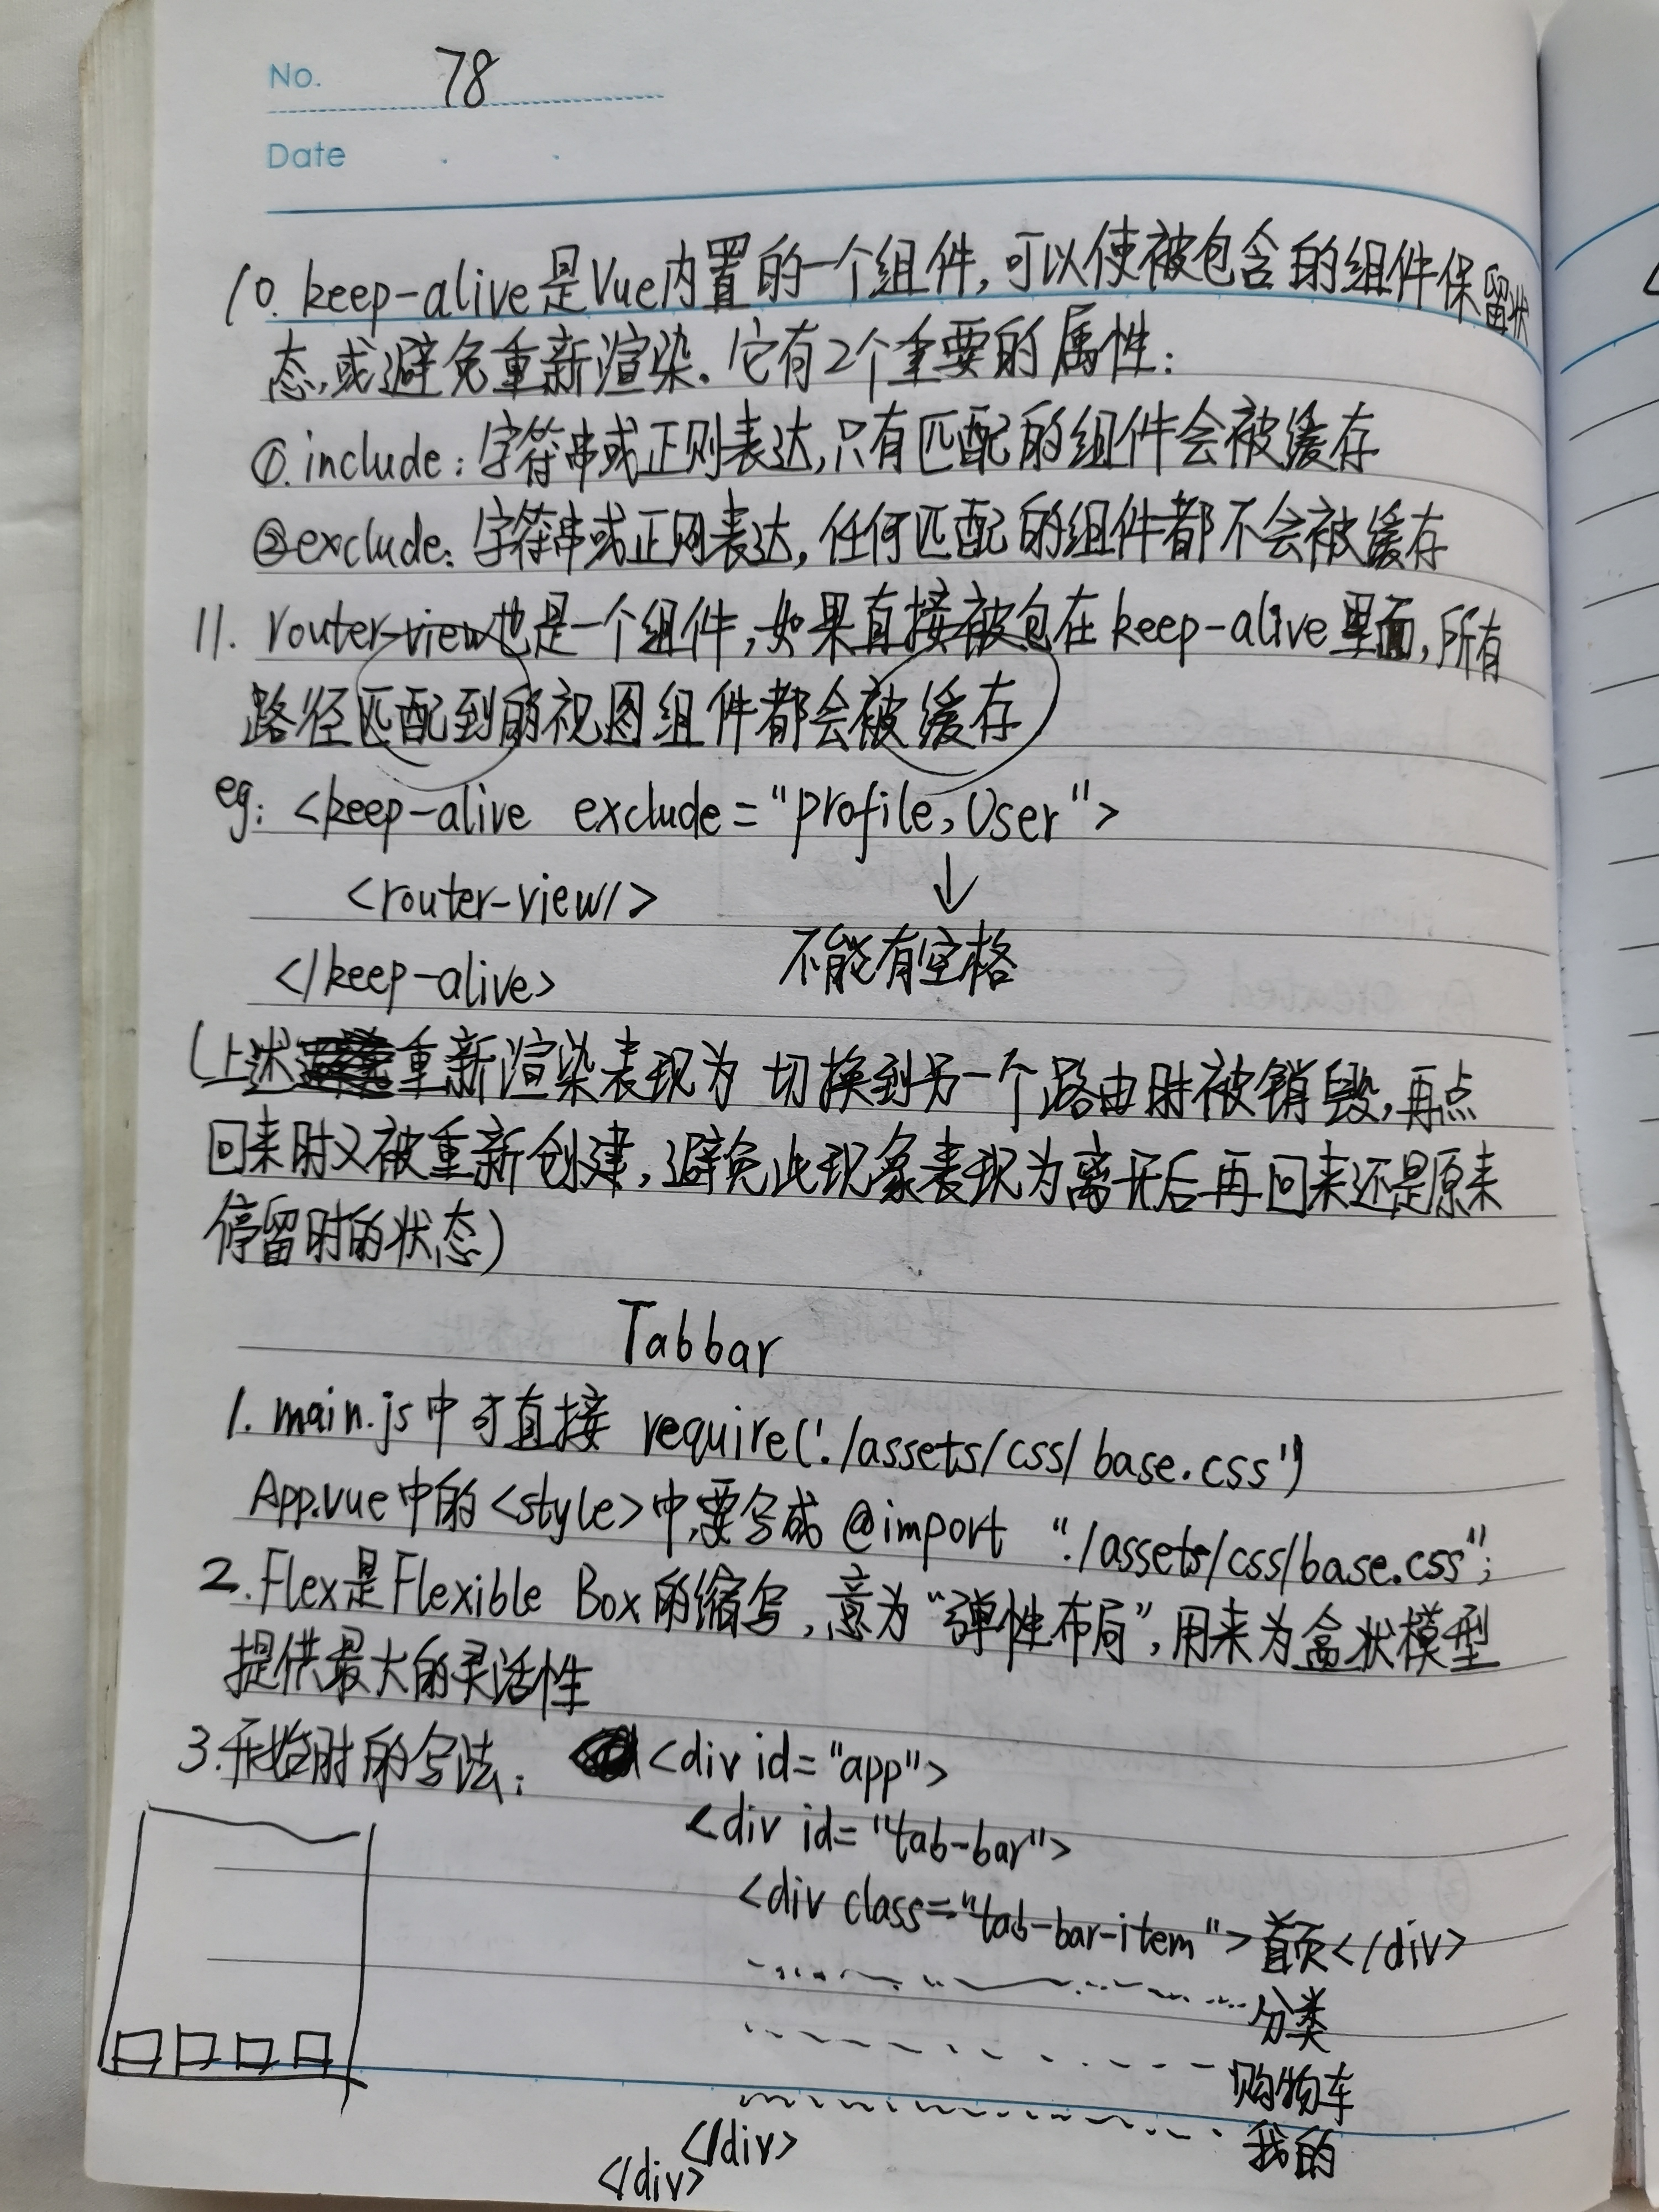 No. 78
Date
10. keep-alive是Vue内置的一个组件,可以使被包含的组件保留状
态,或避免重新渲染.它有2个重要的属性:
①.include:字符串或正则表达,只有匹配的组件会被缓存
②exclude:字符串或正则表达,任何匹配的组件都不会被缓存
11. router-view也是一个组件,如果直接被包在keep-alive里面,所有
路径匹配到的视图组件都会被缓存
eg: <keep-alive exclude="profile,User">
<router-view/>
↓
不能有空格
</keep-alive>
(上述重新渲染表现为 切换到另一个路由时被销毁,再点
回来时又被重新创建,避免此现象表现为离开后再回来还是原来
停留时的状态)
Tabbar
1. main.js中可直接 require('./assets/css/base.css')
App.vue中的<style>中,要写成 @import "./assets/css/base.css";
2.Flex是Flexible Box的缩写,意为“弹性布局”,用来为盒状模型
提供最大的灵活性
3.开始时的写法: <div id="app">
<div id="tab-bar">
<div class="tab-bar-item">首页</div>
分类
购物车
我的
</div>
</div>